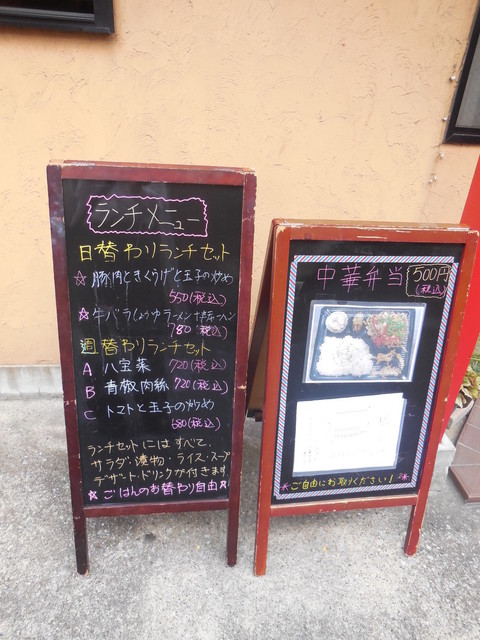 ランチメニュー
日替わりランチセット
☆豚肉ときくらげと玉子の炒め
550(税込)
☆牛バラしょうゆラーメン+半チャーハン
780(税込)
週替わりランチセット
A 八宝菜 720(税込)
B 青椒肉絲 720(税込)
C トマトと玉子の炒め
680(税込)
ランチセットにはすべて、
サラダ・漬物・ライス・スープ
デザート・ドリンクが付きます
☆ごはんのお替わり自由☆
中華弁当 500円
(税込)
ご自由にお取りください!